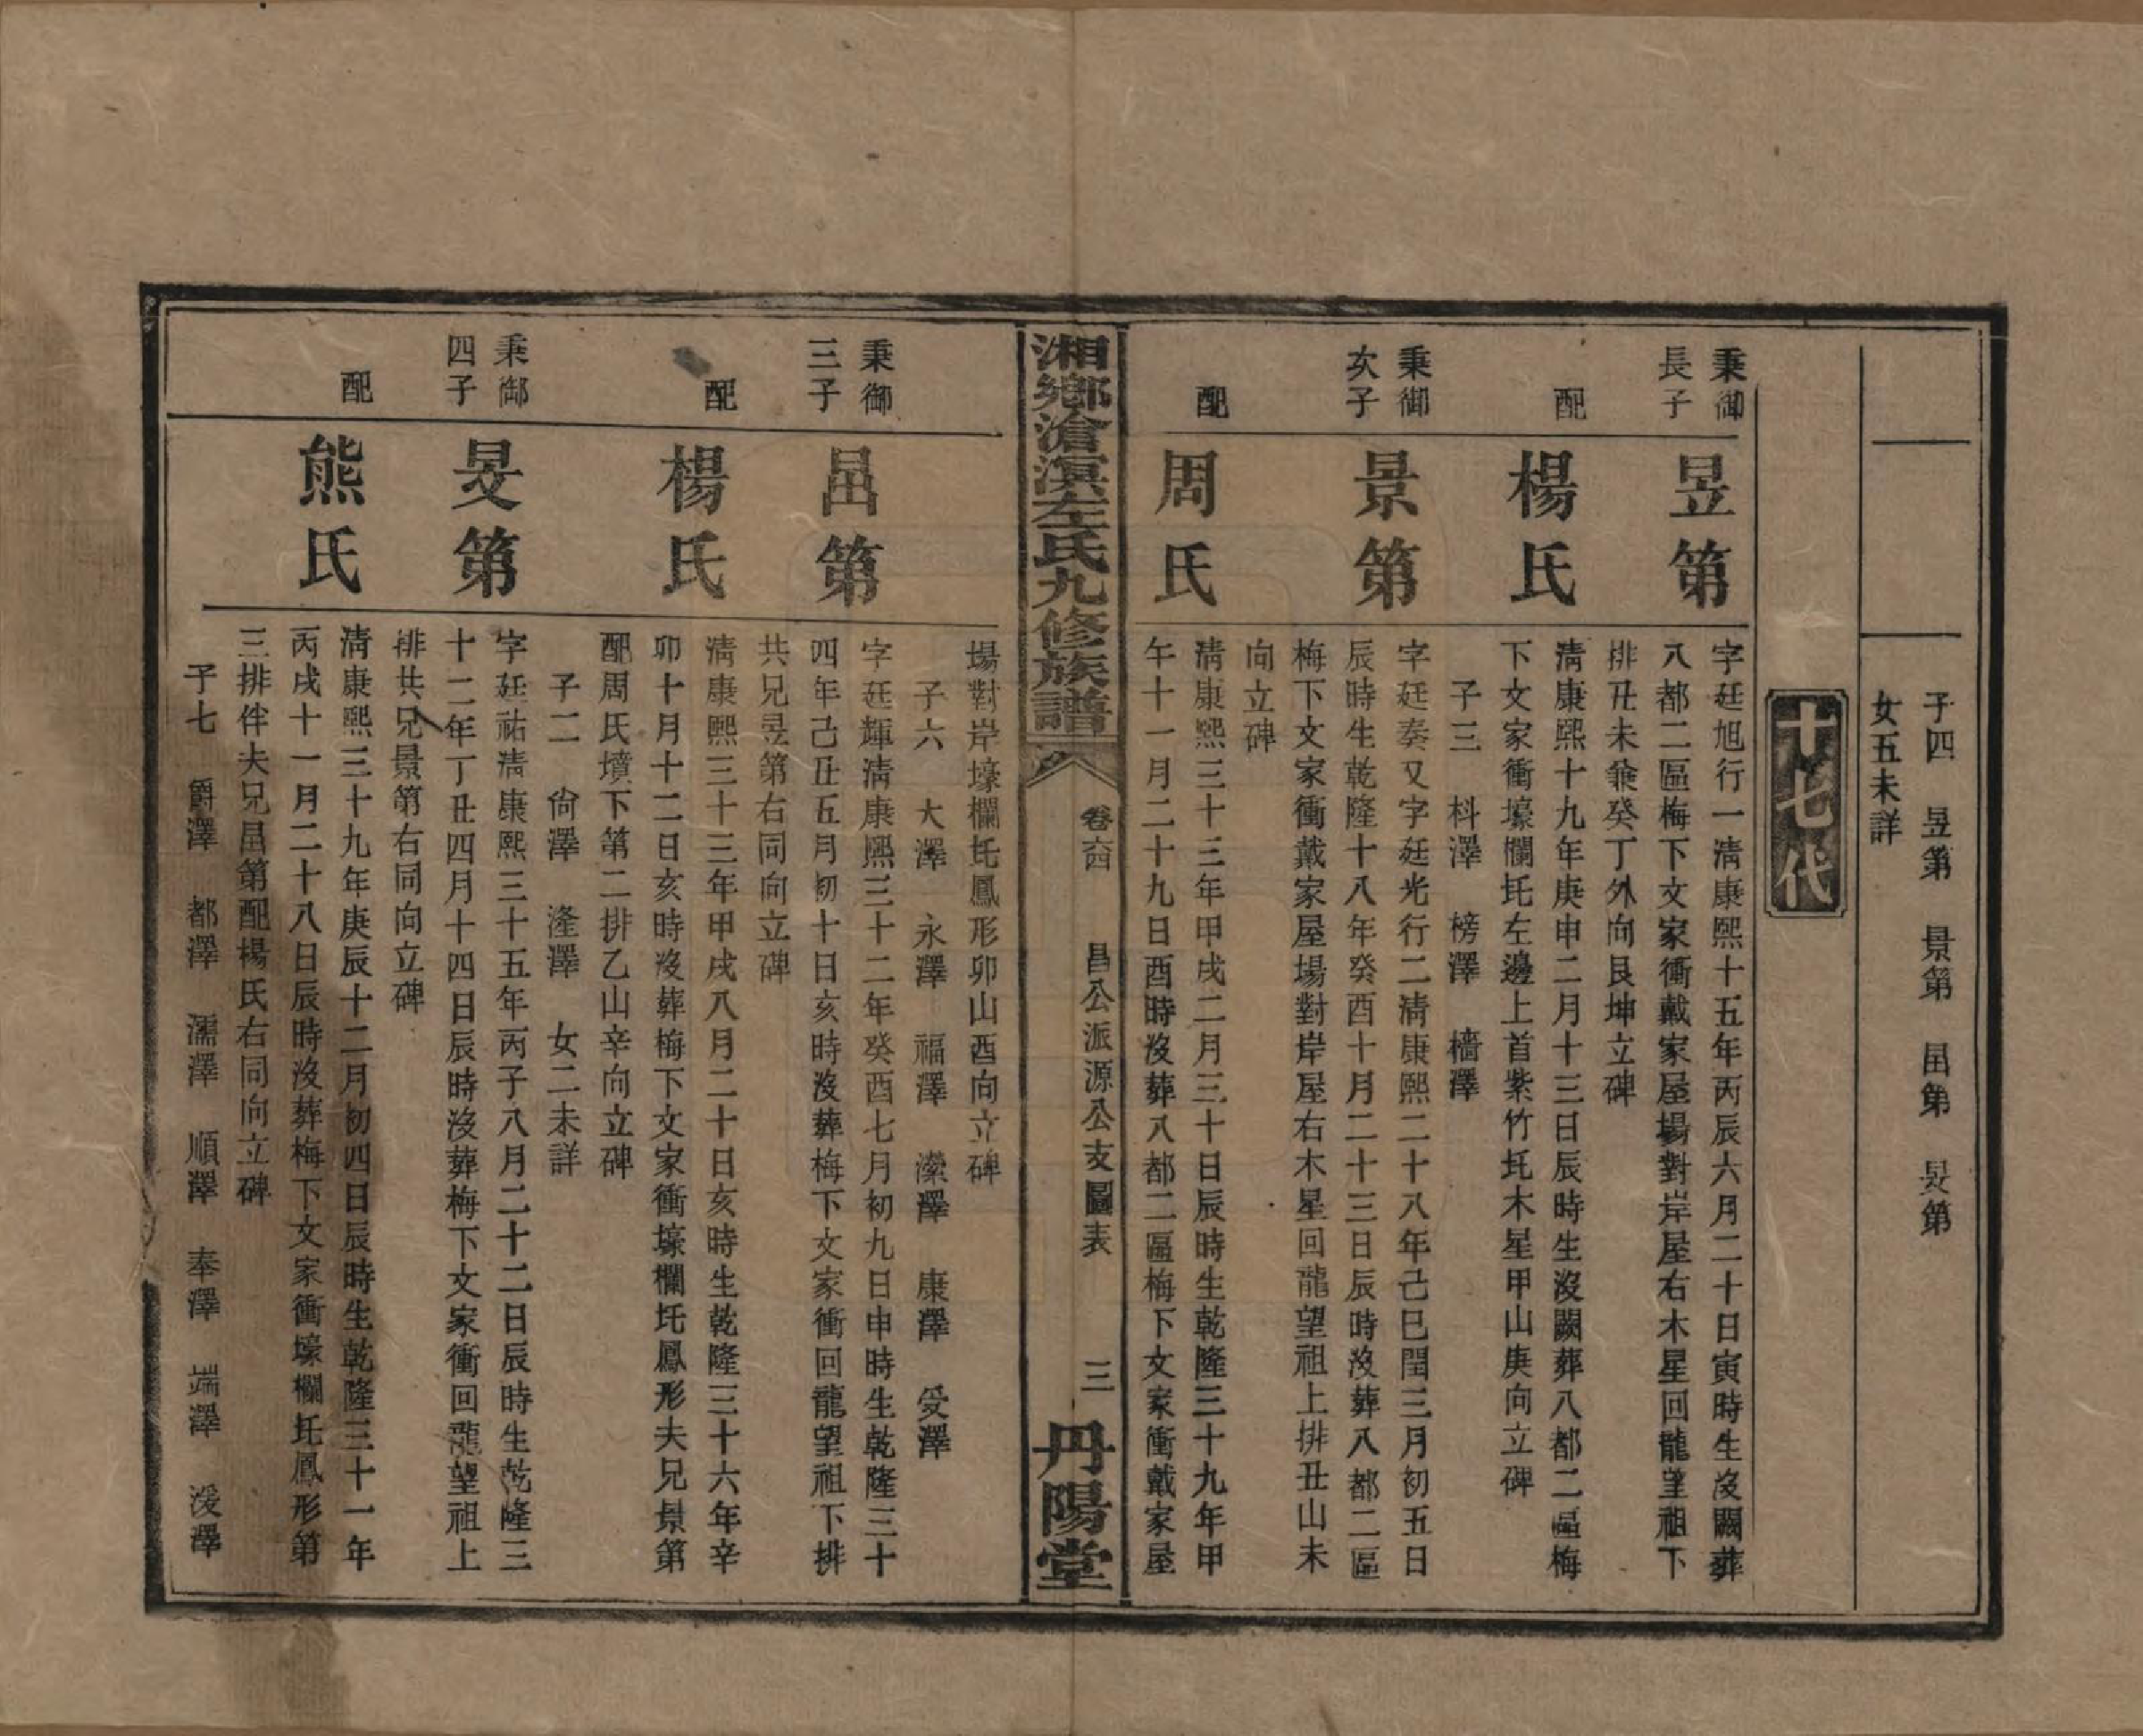 子四　昱第　景第　畕第　旻第
女五未詳
十七代
秉御長子
昱第
字廷旭行一清康熙十五年丙辰六月二十日寅時生沒闕葬
八都二區梅下文家衝戴家屋場對岸屋右木星回龍望祖下
排丑未兼癸丁外向艮坤立碑
配
楊氏
清康熙十九年庚申二月十三日辰時生沒闕葬八都二區梅
下文家衝壕欄圫左邊上首紫竹圫木星甲山庚向立碑
子三　科澤　榜澤　檣澤
秉御次子
景第
字廷奏又字廷光行二清康熙二十八年己巳閏三月初五日
辰時生乾隆十八年癸酉十月二十三日辰時沒葬八都二區
梅下文家衝戴家屋場對岸屋右木星回龍望祖上排丑山未
向立碑
配
周氏
清康熙三十三年甲戌二月三十日辰時生乾隆三十九年甲
午十一月二十九日酉時沒葬八都二區梅下文家衝戴家屋
湘鄉滄溟左氏九修族譜
卷六四
昌公派源公支圖表
三
丹陽堂
場對岸壕欄圫鳳形卯山酉向立碑
子六　大澤　永澤　福澤　濴澤　康澤　受澤
秉御三子
畕第
字廷輝清康熙三十二年癸酉七月初九日申時生乾隆三十
四年己丑五月初十日亥時沒葬梅下文家衝回龍望祖下排
共兄昱第右同向立碑
配
楊氏
清康熙三十三年甲戌八月二十日亥時生乾隆三十六年辛
卯十月十二日亥時沒葬梅下文家衝壕欄圫鳳形夫兄景第
配周氏墳下第二排乙山辛向立碑
子二　尙澤　漋澤　女二未詳
秉御四子
旻第
字廷祐清康熙三十五年丙子八月二十二日辰時生乾隆三
十二年丁丑四月十四日辰時沒葬梅下文家衝回龍望祖上
排共兄景第右同向立碑
配
熊氏
清康熙三十九年庚辰十二月初四日辰時生乾隆三十一年
丙戌十一月二十八日辰時沒葬梅下文家衝壕欄圫鳳形第
三排伴夫兄畕第配楊氏右同向立碑
子七　爵澤　都澤　濡澤　順澤　奉澤　端澤　湲澤